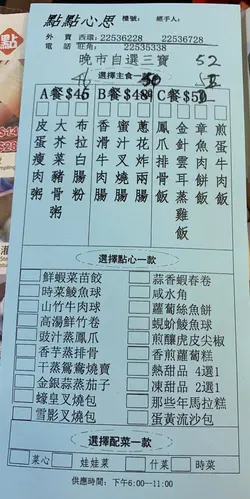 點點心思 檯號: 經手人:
外賣 西環: 22536228 22536728
電話 旺角: 22535338
晚市自選三寶 52
選擇主食一款
A餐$45 B餐$48 C餐$50
皮蛋瘦肉粥
大芥菜豬骨粥
布拉白腸粉
香滑牛肉腸
蜜汁叉燒腸
蔥花炸兩腸
鳳爪排骨飯
金針雲耳蒸雞飯
章魚肉餅飯
煎蛋牛肉飯
選擇點心一款
鮮蝦菜苗餃 蒜香蝦春卷
時菜鯪魚球 咸水角
山竹牛肉球 蘿蔔絲魚餅
高湯鮮竹卷 蜆蚧鯪魚球
豉汁蒸鳳爪 煎釀虎皮尖椒
香芋蒸排骨 香煎蘿蔔糕
干蒸鴛鴦燒賣 熱甜品 4選1
金銀蒜蒸茄子 凍甜品 2選1
蠔皇叉燒包 那些年馬拉糕
雪影叉燒包 蛋黃流沙包
選擇配菜一款
菜心 娃娃菜 什菜 時菜
供應時間: 下午6:00—11:00